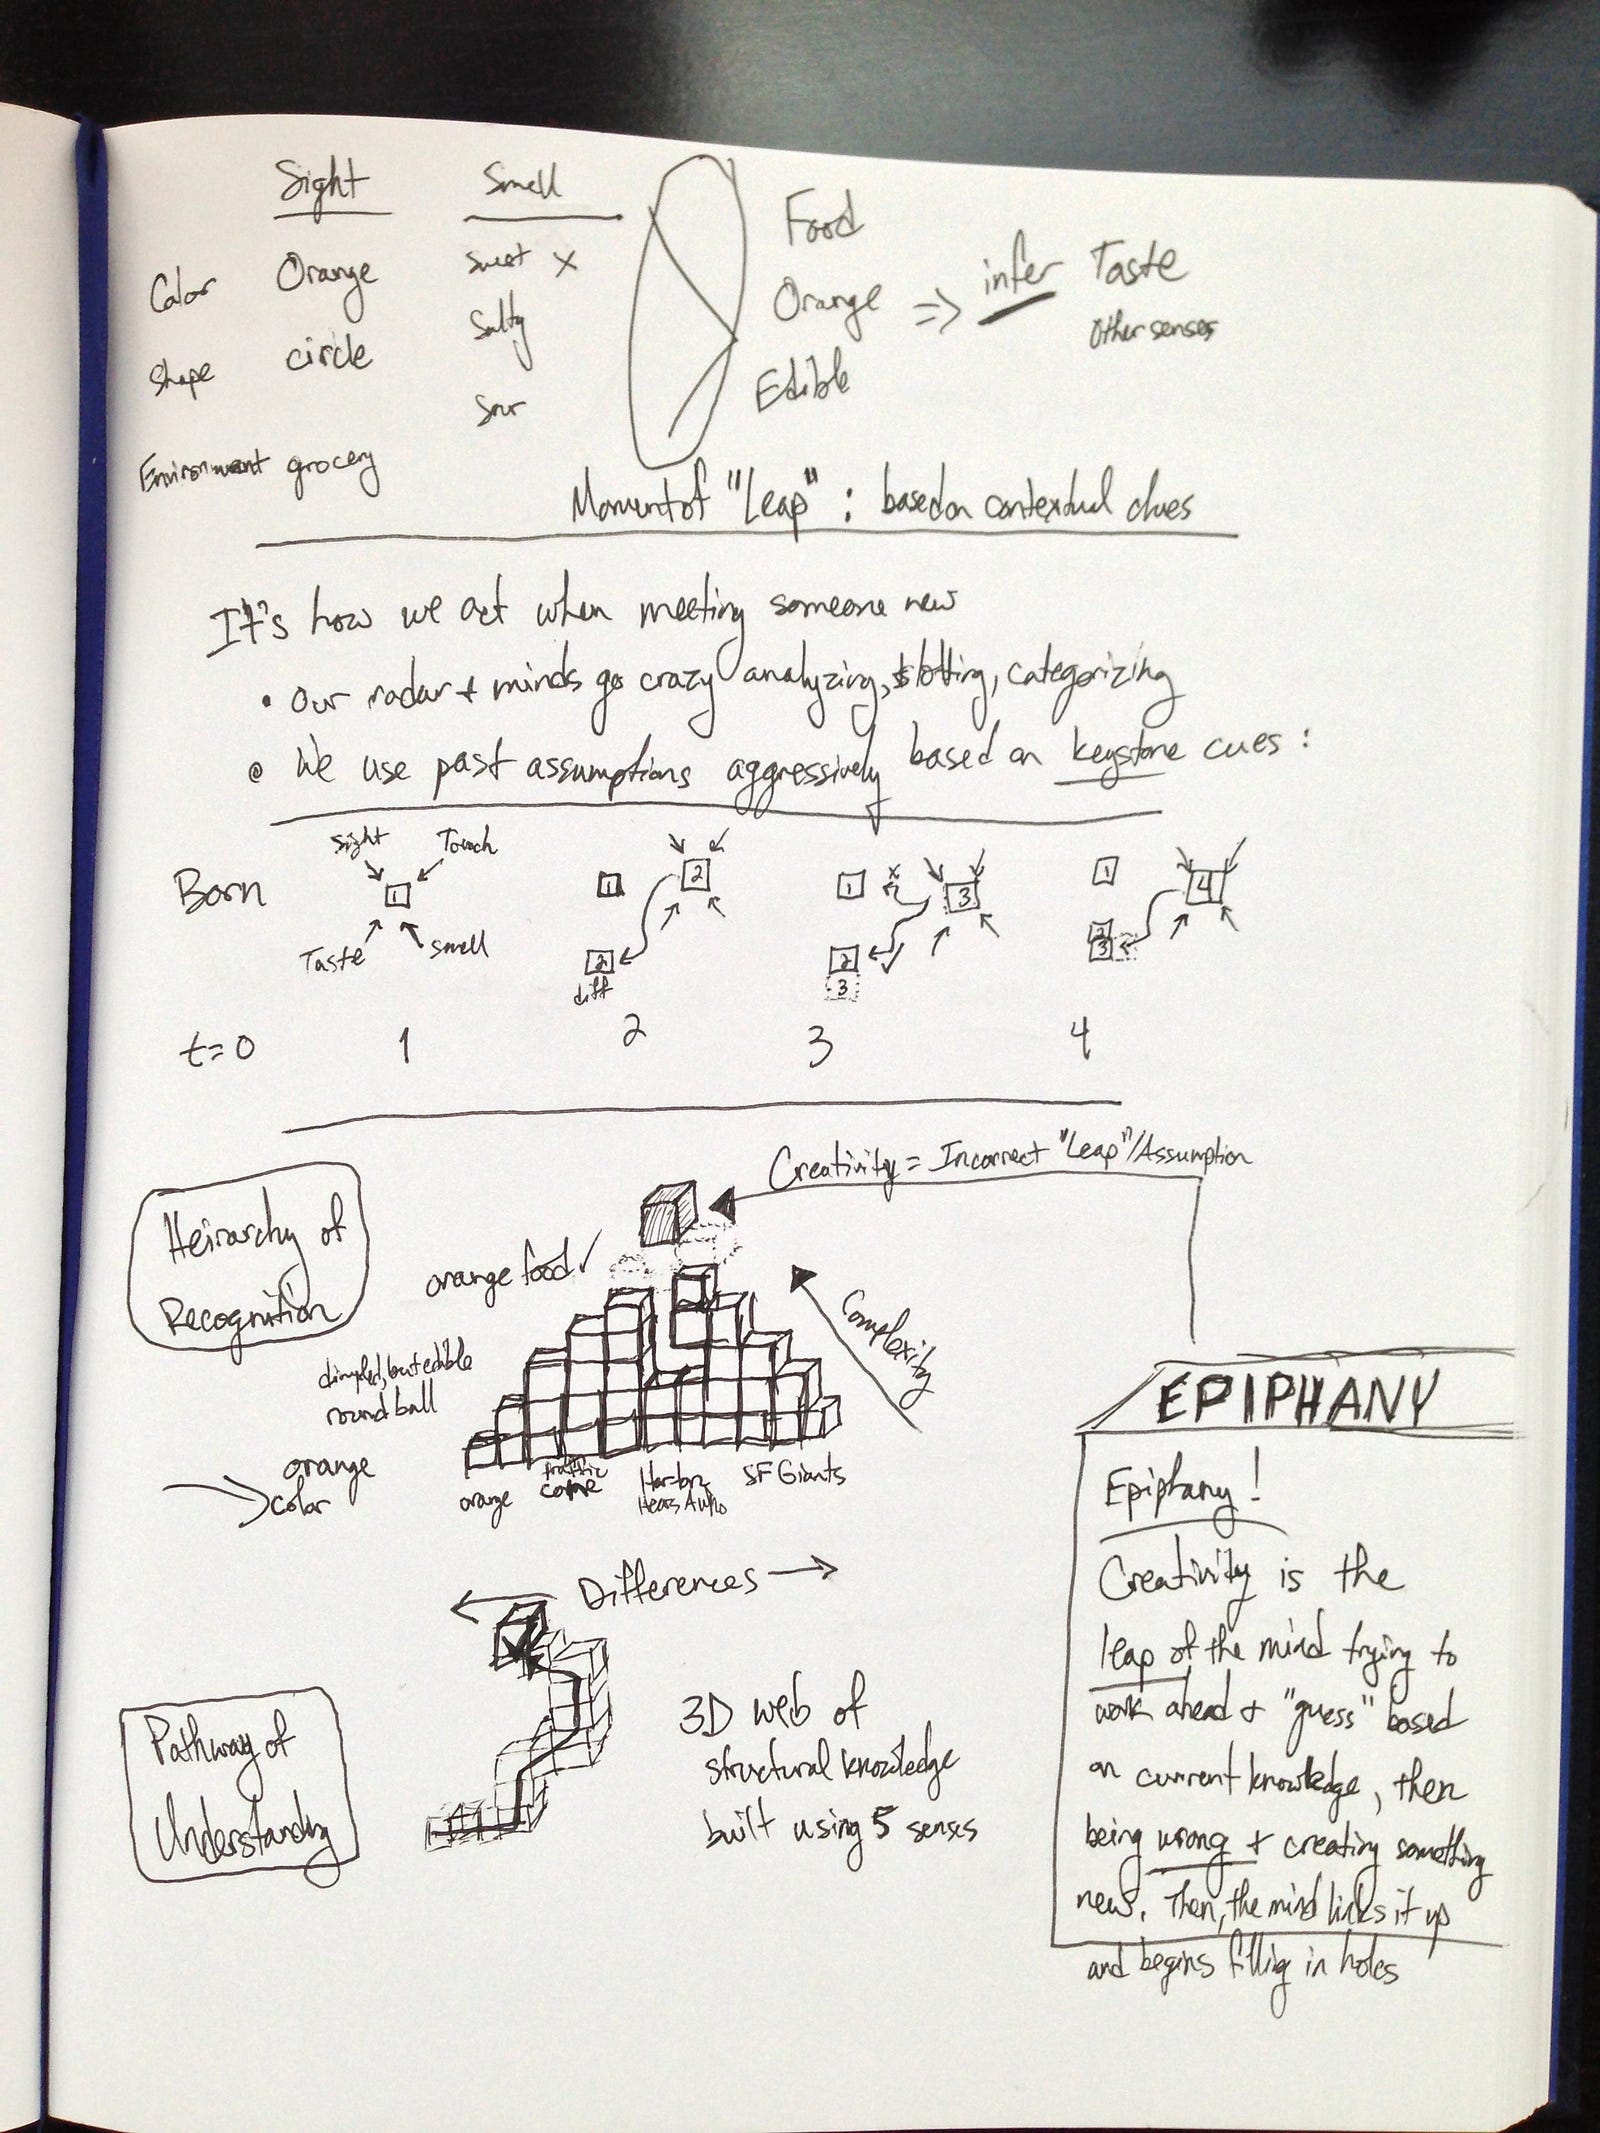 Sight Smell
Color Orange sweet x
Shape circle Salty
Sour
Environment grocery
Food
Orange => infer Taste
Other senses
Edible
Moment of "Leap" : based on contextual clues
It's how we act when meeting someone new
• Our radar + minds go crazy analyzing, slotting, categorizing
• We use past assumptions aggressively based on keystone cues :
Born
Sight Touch
1
Taste smell
1 2
2
diff
1 x 3
2
3
1 4
2
3
t=0 1 2 3 4
Creativity = Incorrect "Leap"/Assumption
Heirarchy of
Recognition
orange food ✓
Complexity
dimpled, but edible
round ball
orange
color
orange
traffic
cone
Horton
Hears A Who
SF Giants
Differences
Pathway of
Understanding
3D web of
structural knowledge
built using 5 senses
EPIPHANY
Epiphany!
Creativity is the
leap of the mind trying to
work ahead + "guess" based
on current knowledge, then
being wrong + creating something
new. Then, the mind links it up
and begins filling in holes